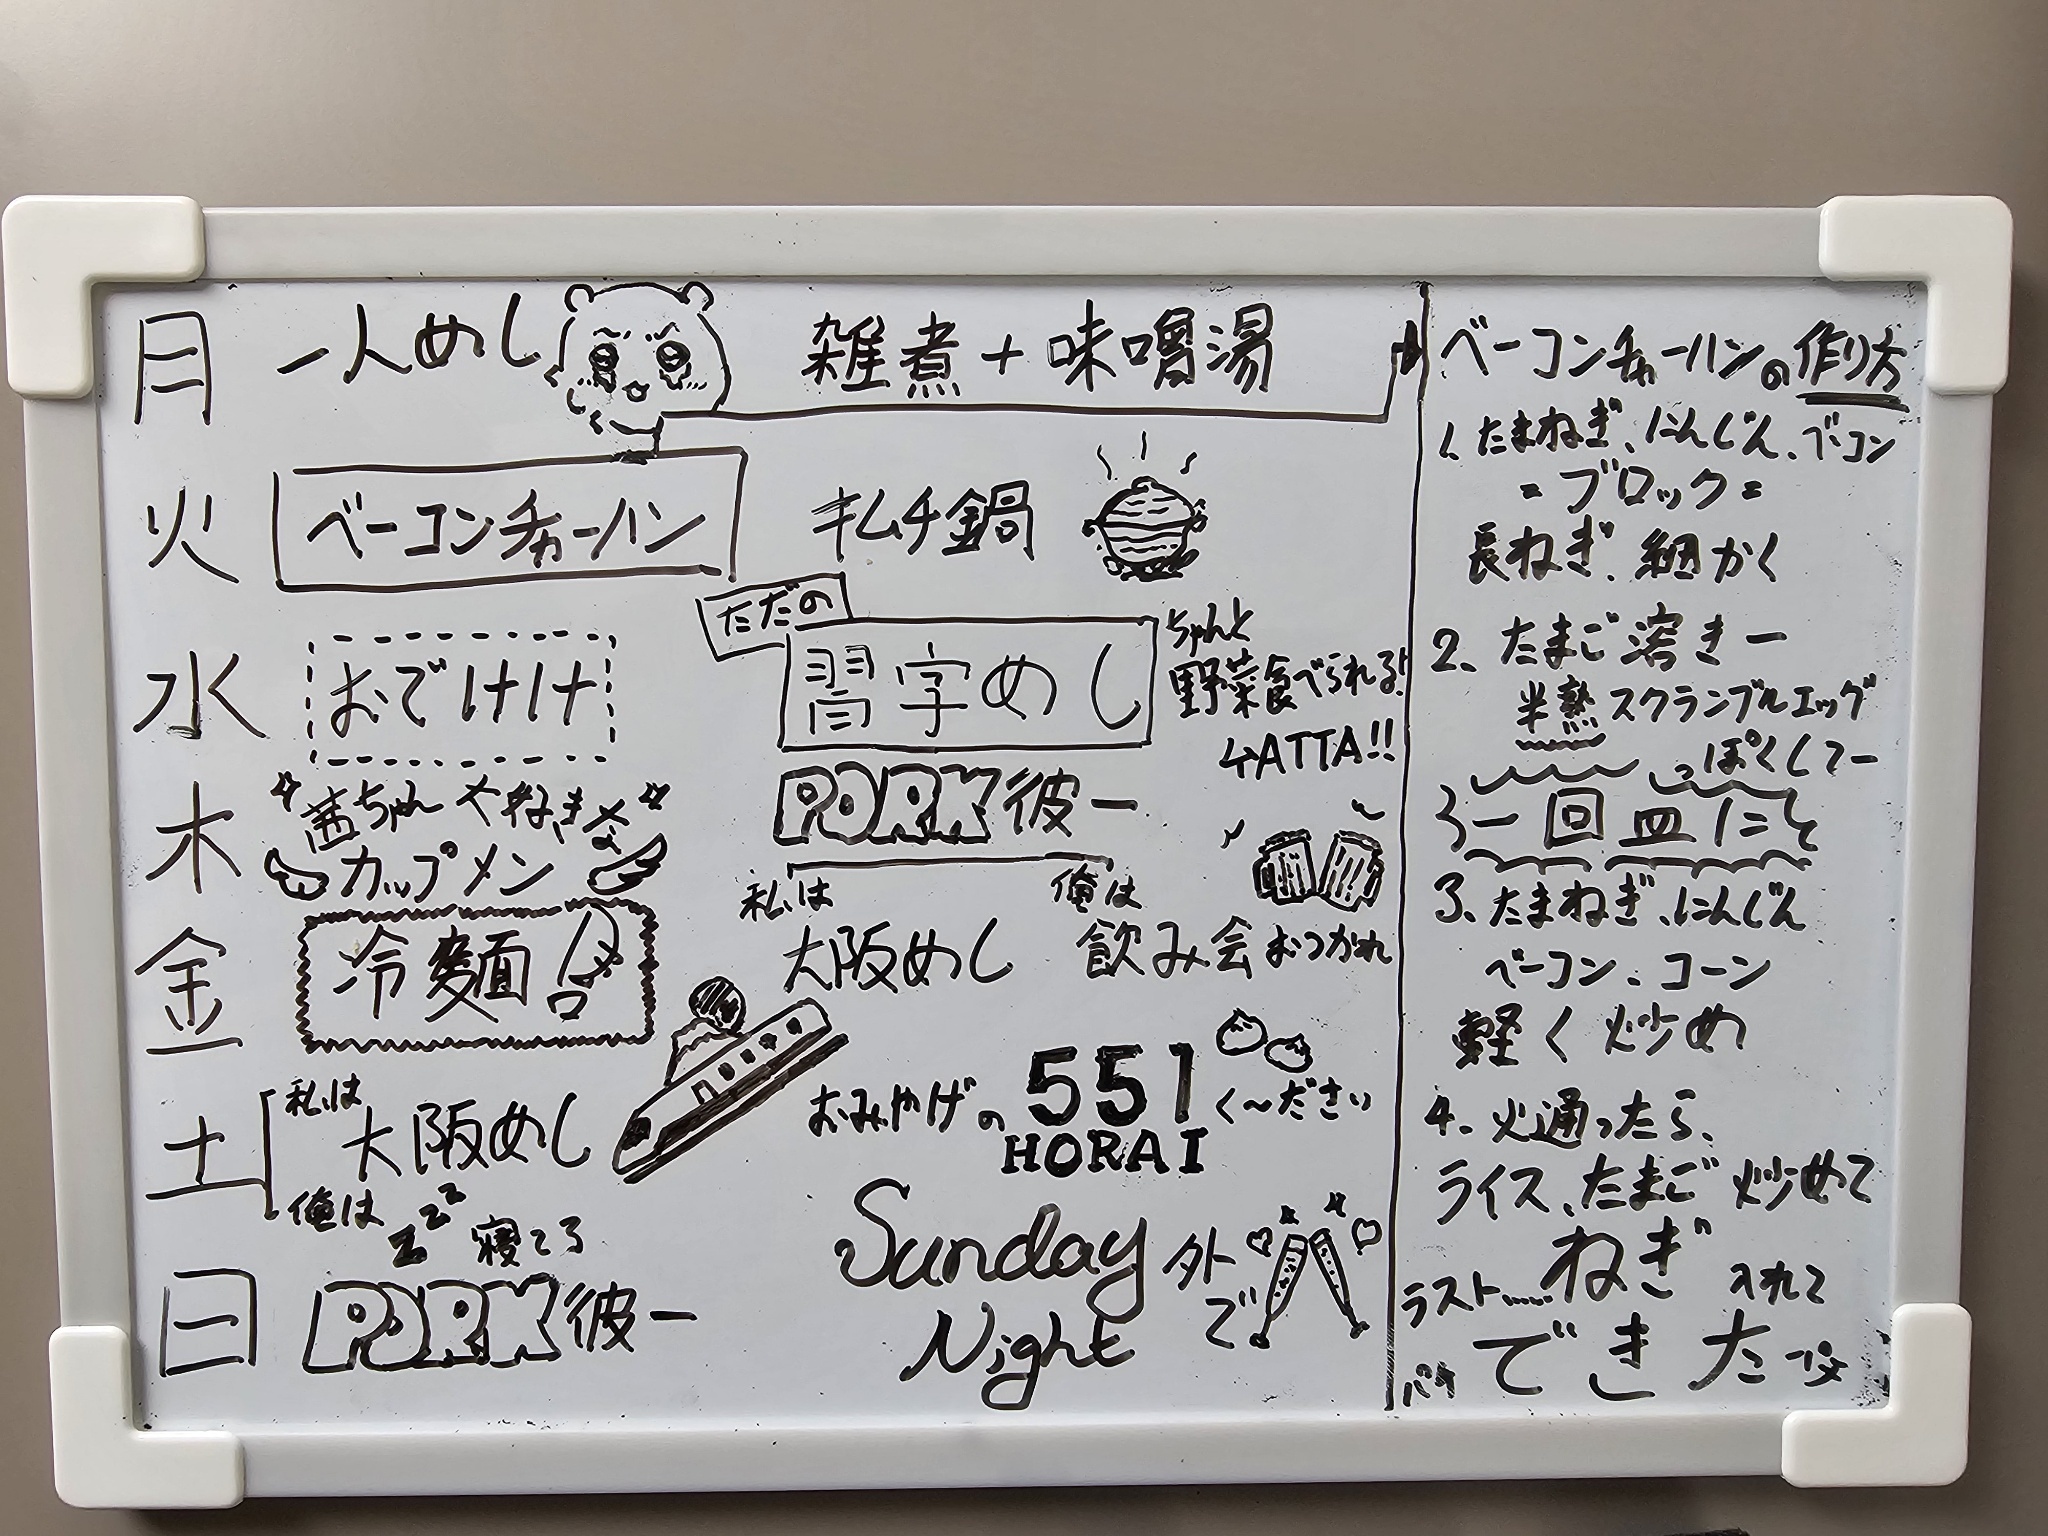 月 一人めし 雑煮+味噌湯
火 ベーコンチャーハン キムチ鍋
水 おでけけ ただの 習字めし
ちゃんと
野菜食べられる!
ATTA!!
木 茜ちゃん
カップメン
PORK 彼一
金 冷麺
私は 大阪めし
俺は 飲み会 おつかれ
土 私は 大阪めし
俺は zzz 寝てる
おみやげの 551 HORAI く〜ださい
日 PORK 彼一
Sunday Night 外で
ベーコンチャーハンの作り方
1. たまねぎ、にんじん、ベーコン
=ブロック=
長ねぎ、細かく
2. たまご溶きー
半熟スクランブルエッグ
っぽくしてー
一回皿に
3. たまねぎ、にんじん
ベーコン、コーン
軽く炒め
4. 火通ったら、
ライス、たまご 炒めて
ラスト......ねぎ 入れて
できたー